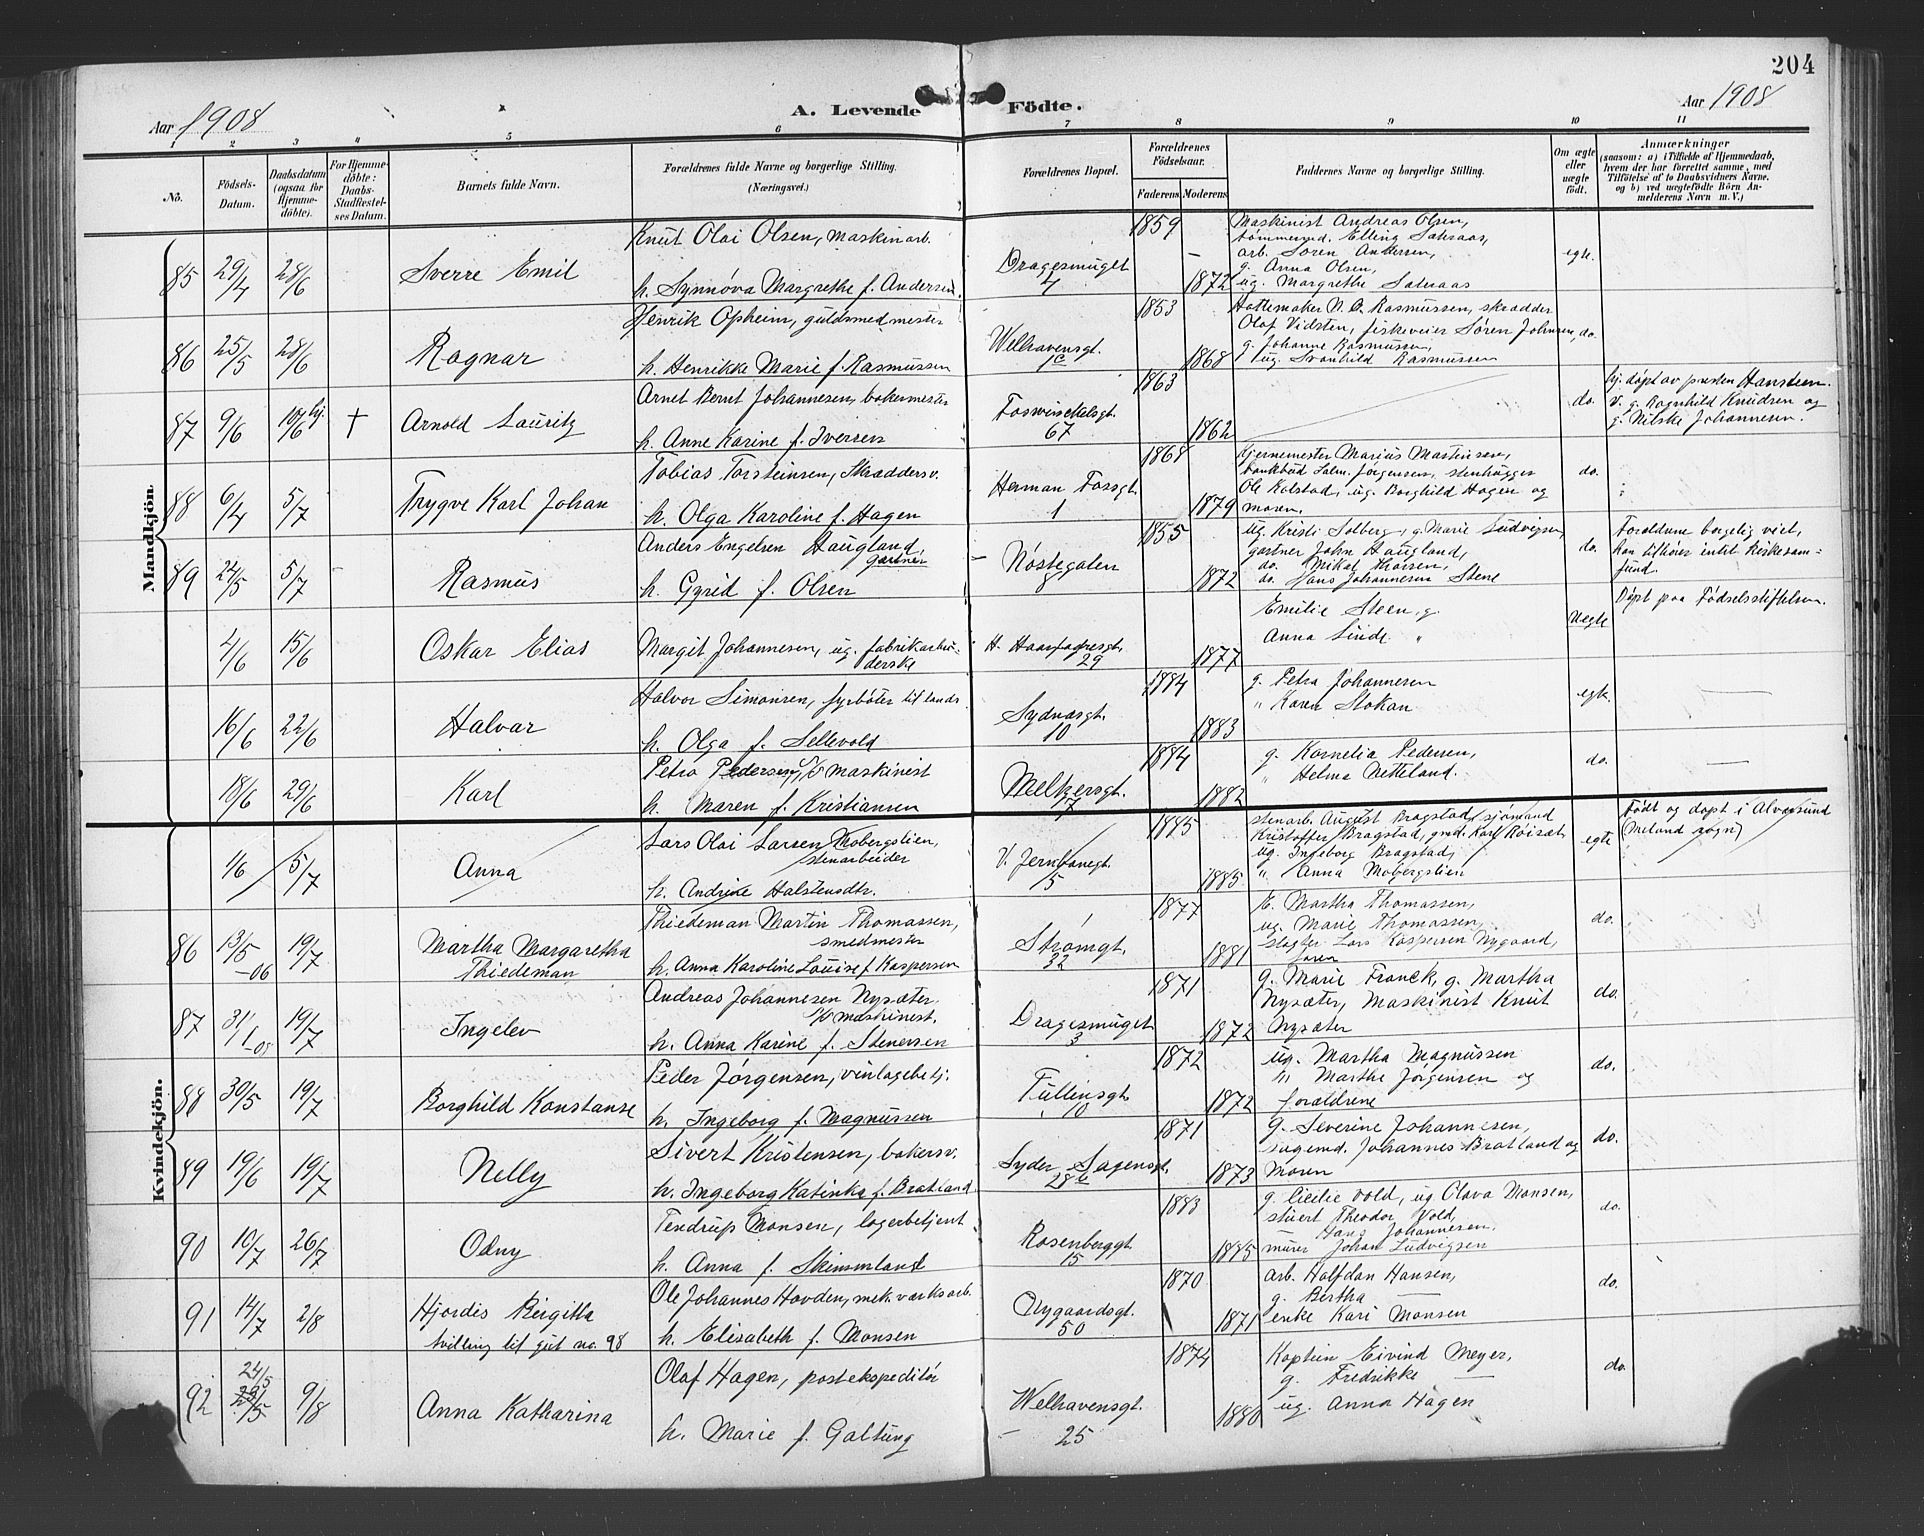 204
Aar 1908
A. Levende Födte.
Aar 1908
1 2 3 4 5 6 7 8 9 10 11
No.
Födsels-Datum.
Daabsdatum (ogsaa for Hjemme-döbte).
For Hjemme-döbte: Daabs-Stadfæstel-ses Datum.
Barnets fulde Navn.
Forældrenes fulde Navne og borgerlige Stilling.
(Næringsvei.)
Forældrenes Bopæl.
Forældrenes Födselsaar.
Faderens Moderens
Faddernes Navne og borgerlige Stilling.
Om ægte eller uægte födt.
Anmærkninger
(saasom: a) i Tilfælde af Hjemmedaab, hvem der har forrettet samme, med Tilföielse af to Daabsvidners Navne, og b) ved uægtefödte Börn An-melderens Navn m. V.)
Mandkjön.
85 29/4 28/6 Sverre Emil
Knut Olai Olsen, maskinarb.
h. Synnøva Margrethe f. Andersen.
Dragesmuget 4
1859 1872
Maskinist Andreas Olsen,
tømmermd. Elling
arb. Søren Andersen,
g. Anna Olsen,
ug. Margrethe
egte.
86 25/5 28/6 Ragnar
Henrik Opheim, guldsmedmester
h. Henrikke Marie f. Rasmussen
Welhavensgt. 1c
1853 1868
Hattemaker N. O. Rasmussen, skrædder
Olaf Vidsten, fiskeveier Søren Johnsen,
g. Johanne Rasmussen,
ug. Svanhild Rasmussen
do.
87 9/6 10/6 hj. † Arnold Lauritz
Arnet Bernt Johannesen, bakermester
h. Anne Karine f. Iversen
Fosswinckelsgt. 67
1863 1862
do.
hj. døpt av presten Hansteen.
V. g. Ragnhild Knudsen og
g. Nilske Johannesen.
88 6/4 5/7 Trygve Karl Johan
Tobias Torsteinsen, Skrædderv.
h. Olga Karoline f. Hagen
Herman Fossgt. 1
1868 1879
Hjernemester Marius Martinsen,
bankbud Salm. Jørgensen, stenhugger
Ole Kolstad, ug. Borghild Hagen og
moren.
do.
89 24/5 5/7 Rasmus
Anders Engelsen Haugland,
Gartner
h. Gyrid f. Olsen
Nøstegaten 8
1855 1872
ug. Kristi Solberg, g. Marie Ludvigsen,
gartner John Haugland,
do. Mikal
do. Hans Johannesen Stene
do.
Forældrene borgelig viet,
han tilhører intet kirkesam=
fund.
4/6 15/6 Oskar Elias
Margit Johannesen, ug. fabrikarbei=
derske
H. Haarfagresgt. 29
1877
Emilie Steen, g.
Anna Linde "
Uegte
Døpt paa Fødselsstiftelsen.
16/6 22/6 Halvar
Halvor Simonsen, fyrbøter til lands
h. Olga f. Sellevold
Sydnæsgt. 10
1884 1883
g. Petra Johannesen
" Karen Stokan
egte.
18/6 29/6 Karl
Petro Pedersen, D/S maskinist
h. Maren f. Kristiansen
Melkersgt. 7
1884 1882
g. Kornelia Pedersen,
" Helma Netteland.
do.
Kvindekjön.
1/6 5/7 Anna
Lars Olai Larsen Mobergslien,
stenarbeider
h. Andrine Halstensdtr.
V. Jernbanegt. 5
1885 1885
stenarb. August Bragstad, sjømand
Kristoffer Bragstad, gmd. Karl Røisæt,
ug. Ingeborg Bragstad,
" Anna Mobergslien
egte
Født og døpt i Alversund
(Meland sogn)
86 13/5 -06 19/7 Martha Margaretha
Thiedeman
Thiedeman Martin Thomassen,
smedmester
h. Anna Karoline Louise f. Kaspersen
Strømgt. 32
1877 1881
E. Martha Thomassen,
ug. Marie Thomassen,
slagter Lars Kaspersen Nygaard,
faren
do.
87 31/1 -08 19/7 Ingelev
Andreas Johannesen Nysæter,
D/S maskinist.
h. Anna Karine f. Stenersen
Dragesmuget 3
1871 1872
g. Marie Franck, g. Martha
Nysæter, Maskinist Knut
Nysæter
do.
88 30/5 19/7 Borghild Konstanse
Peder Jørgensen, vinlagebetj.
h. Ingeborg f. Magnussen
Tullinsgt. 10
1872 1872
ug. Martha Magnussen
h. Marthe Jørgensen og
forældrene
do.
89 19/6 19/7 Nelly
Sivert Kristensen, bakersv.
h. Ingeborg Katinka f. Bratland
Syder Sagensgt. 28b
1871 1873
g. Severine Johannesen,
sagemd. Johannes Bratland og
Moren
do.
90 10/7 26/7 Odny
Tendrup Monsen, lagerbetjent
h. Anna f. Skimmeland
Rosenberggt. 15
1883 1885
g. Cicilie Vold, ug Olava Monsen,
stuert Theodor Vold,
Hans Johannesen,
murer Johan Ludvigsen
do.
91 14/7 2/8 Hjørdis Birgitta
tvilling til gut no. 98
Ole Johannes Hovden, mek. værksarb.
h. Elisabeth f. Monsen
Nygaardsgt. 50
1870 1871
arb. Halfdan Hansen,
g. Bertha —
enke Kari Monsen
do.
92 24/5 9/8 Anna Katharina
Olaf Hagen, postekspeditør
h. Marie f. Galtung
Welhavensgt. 25
1874 1880
Kaptein Eivind Meyer,
g. Fredrikke —
ug. Anna Hagen
do.